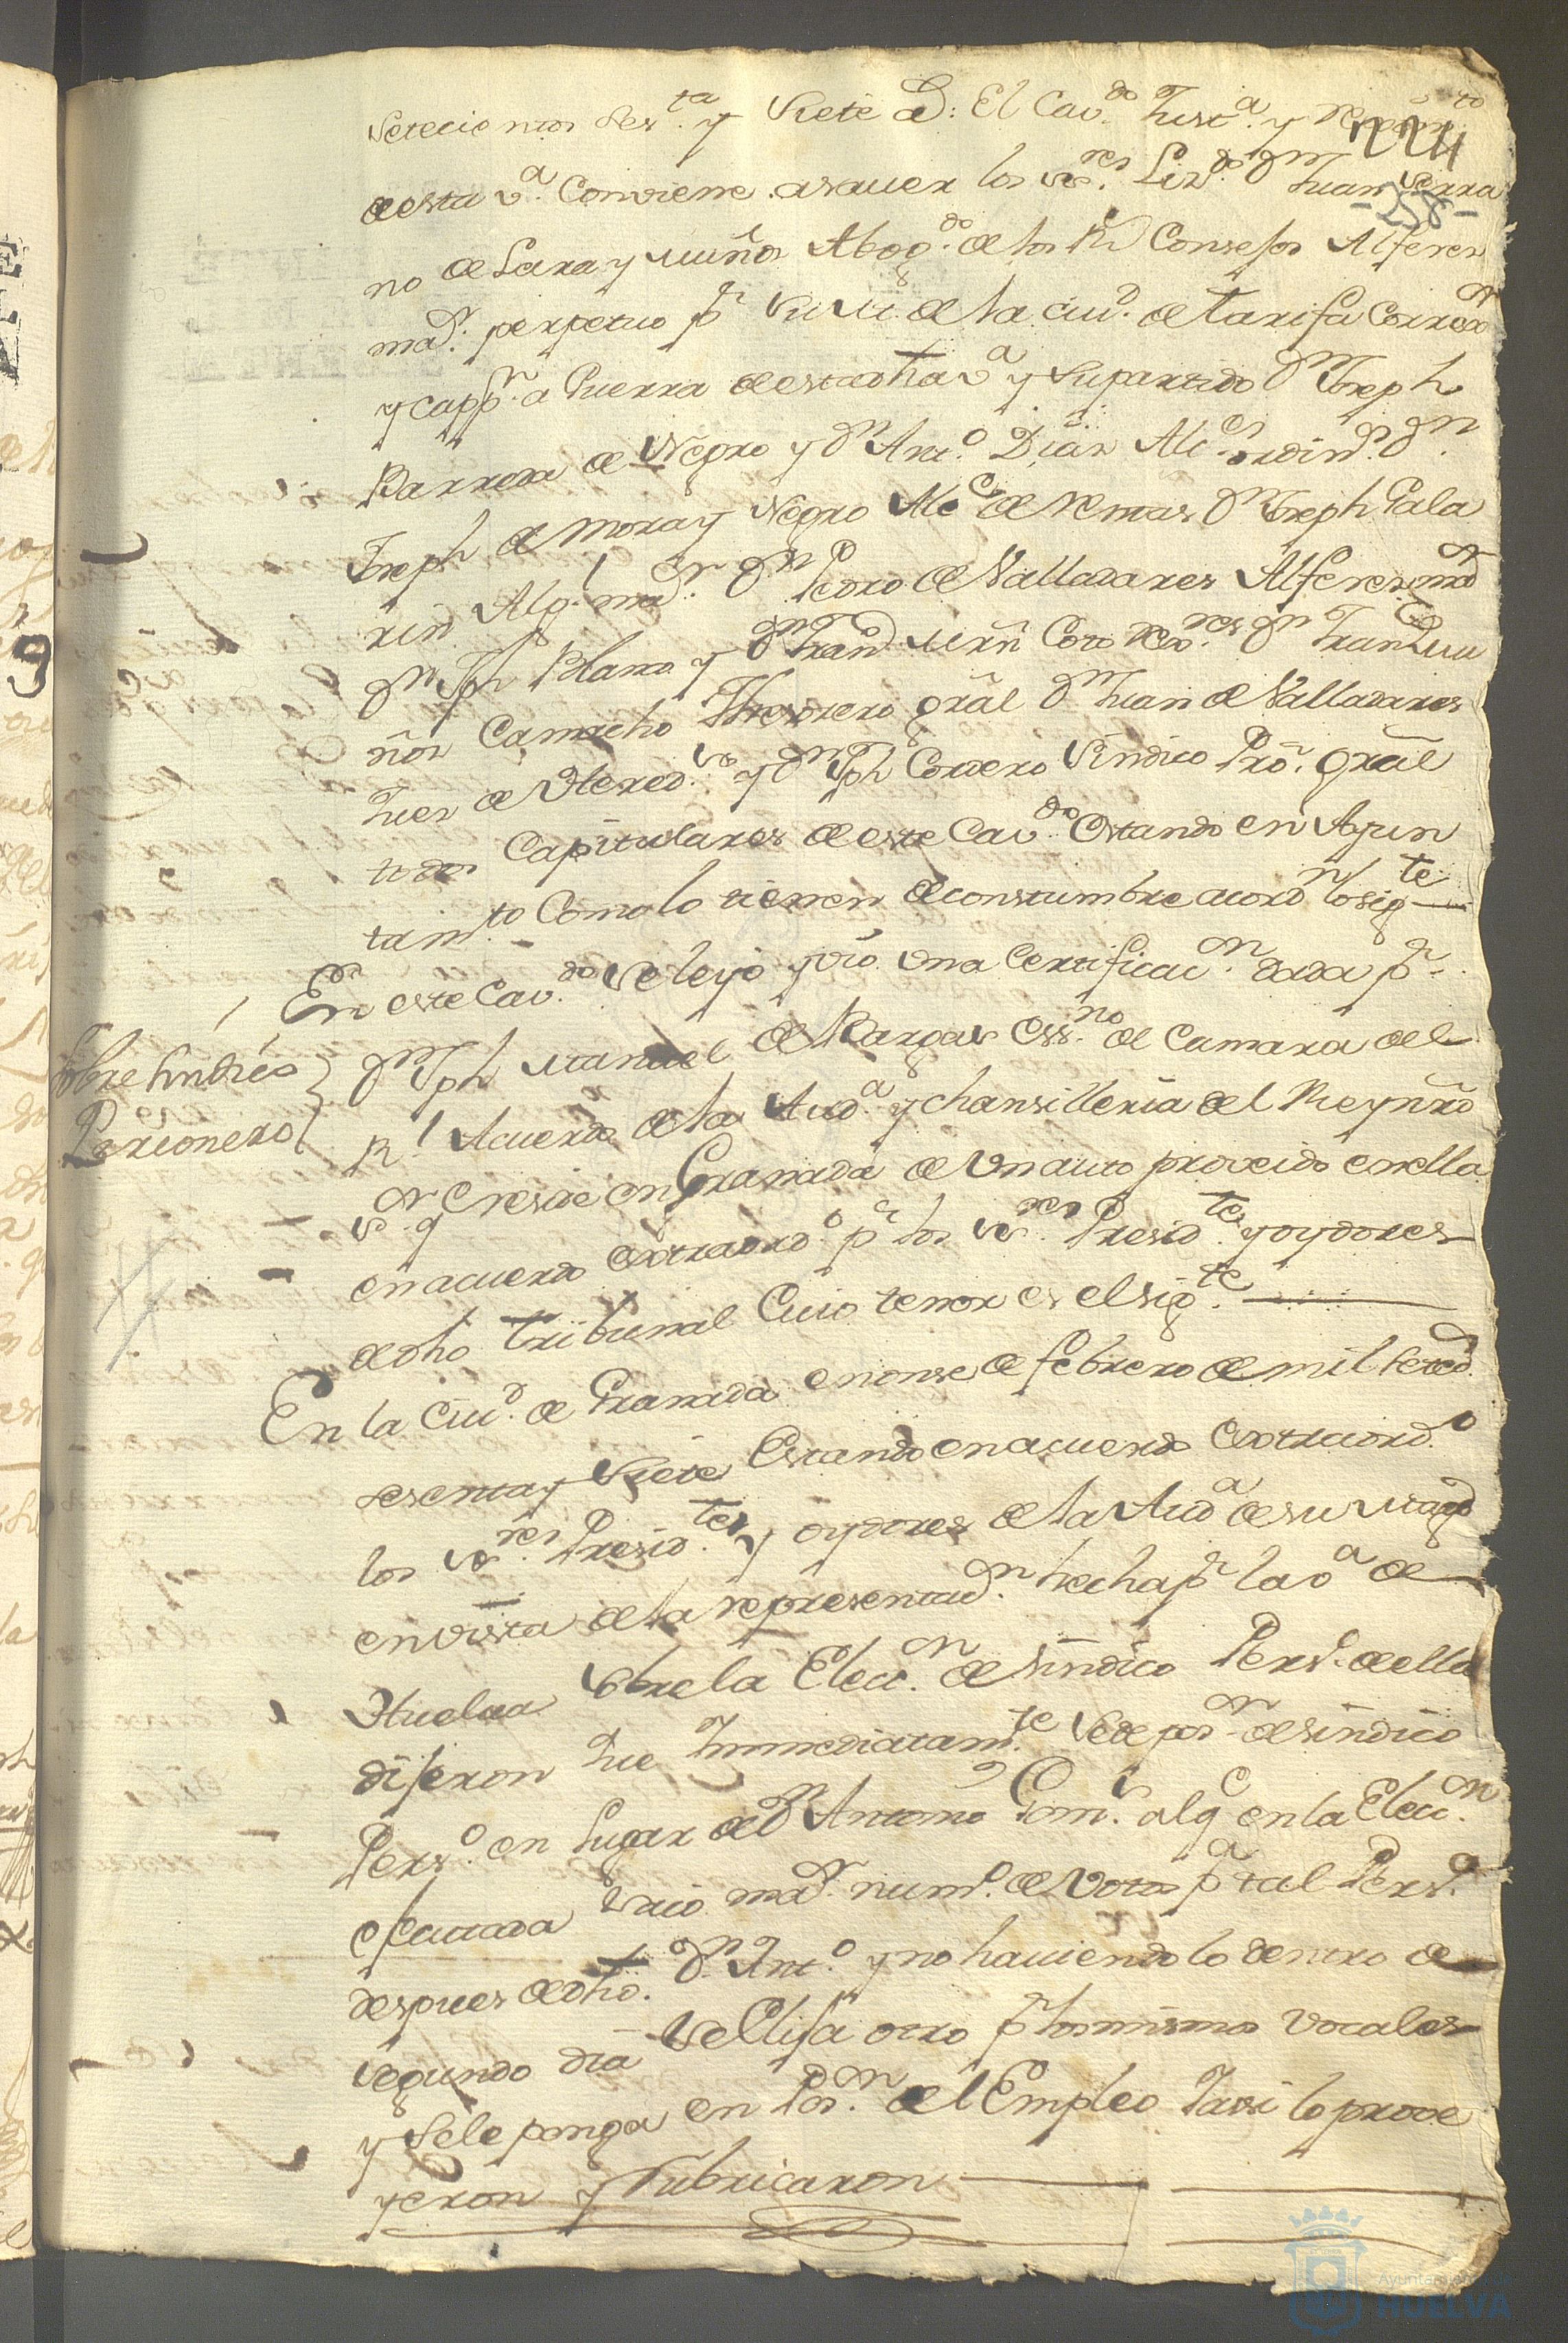 setecientos ses.ta y siete aD: El Cav.do Just.a y
224
de esta v.a Conviene asaver los ss.res Liz.do Dn Juan Serra
-258-
no de Lara y Muños Abog.do de los Rs Consejos Alferes
maor. perpetuo pr su M. de la ciud. de Tarifa Correxor
y capp.n a Guerra de esta dha v.a y su partido Dn Joseph
Barreda de Negro y Dn Ant.o Dias Alc.es ordin.s Dn
Joseph de Mora y Negro Alc.e de Rentas Dn Joseph Gala
rin Alg.l maor. Dn Pedro de Valladares Alferes maor
Dn Jph Blanco y Dn Fran.co Mrñ Coto Rex.res Dn Fran.co Mu
ños Camacho Thesorero gral Dn Juan de Valladares
Jues de Hered.s y Dn Jph Cordero Sindico Pror. gral
todos Capitulares de este Cav.do Estando en Ayun
tam.to Como lo tienen de constumbre acord.n lo sig.te
Sobre Sindico
Personero
En este Cav.do se leyo y vio una Certificac.n dada pr
Dn Jph Manuel de Bargas Ess.no de Camara del
R.l Acuerdo de la Aud.a y chansilleria del Rey nro
s.or q reside en Granada de un auto proveido en ella
en acuerdo extraord.o pr los ss.res Presid.tes y oydores
de dho tribunal Cuio tenor es el sig.te
En la Ciud. de Granada en onse de febrero de mil seteds.
sesenta y siete Estando en acuerdo extraiord.o
los ss.res Presid.tes y oydores de la Aud.a de su Magd
en vista de la representac.n hecha pr la v.a de
Huelva sobre la Elecc.n de sindico Pers.o de ella
dijeron Que Immediatam.te se de pos.on de sindico
Pers.o en lugar de Dn Antonio Gom.s al q en la Elecc.n
efectuada saco maor. num.o de votos pa tal Pers.o
despues de dho. Dn Ant.o y no haviendolo dentro de
segundo dia se Elija otro pr los mismos vocales
y se le ponga en Pos.on del Empleo Y assi lo prove
yeron y Rubricaron
Ayuntamiento de
HUELVA